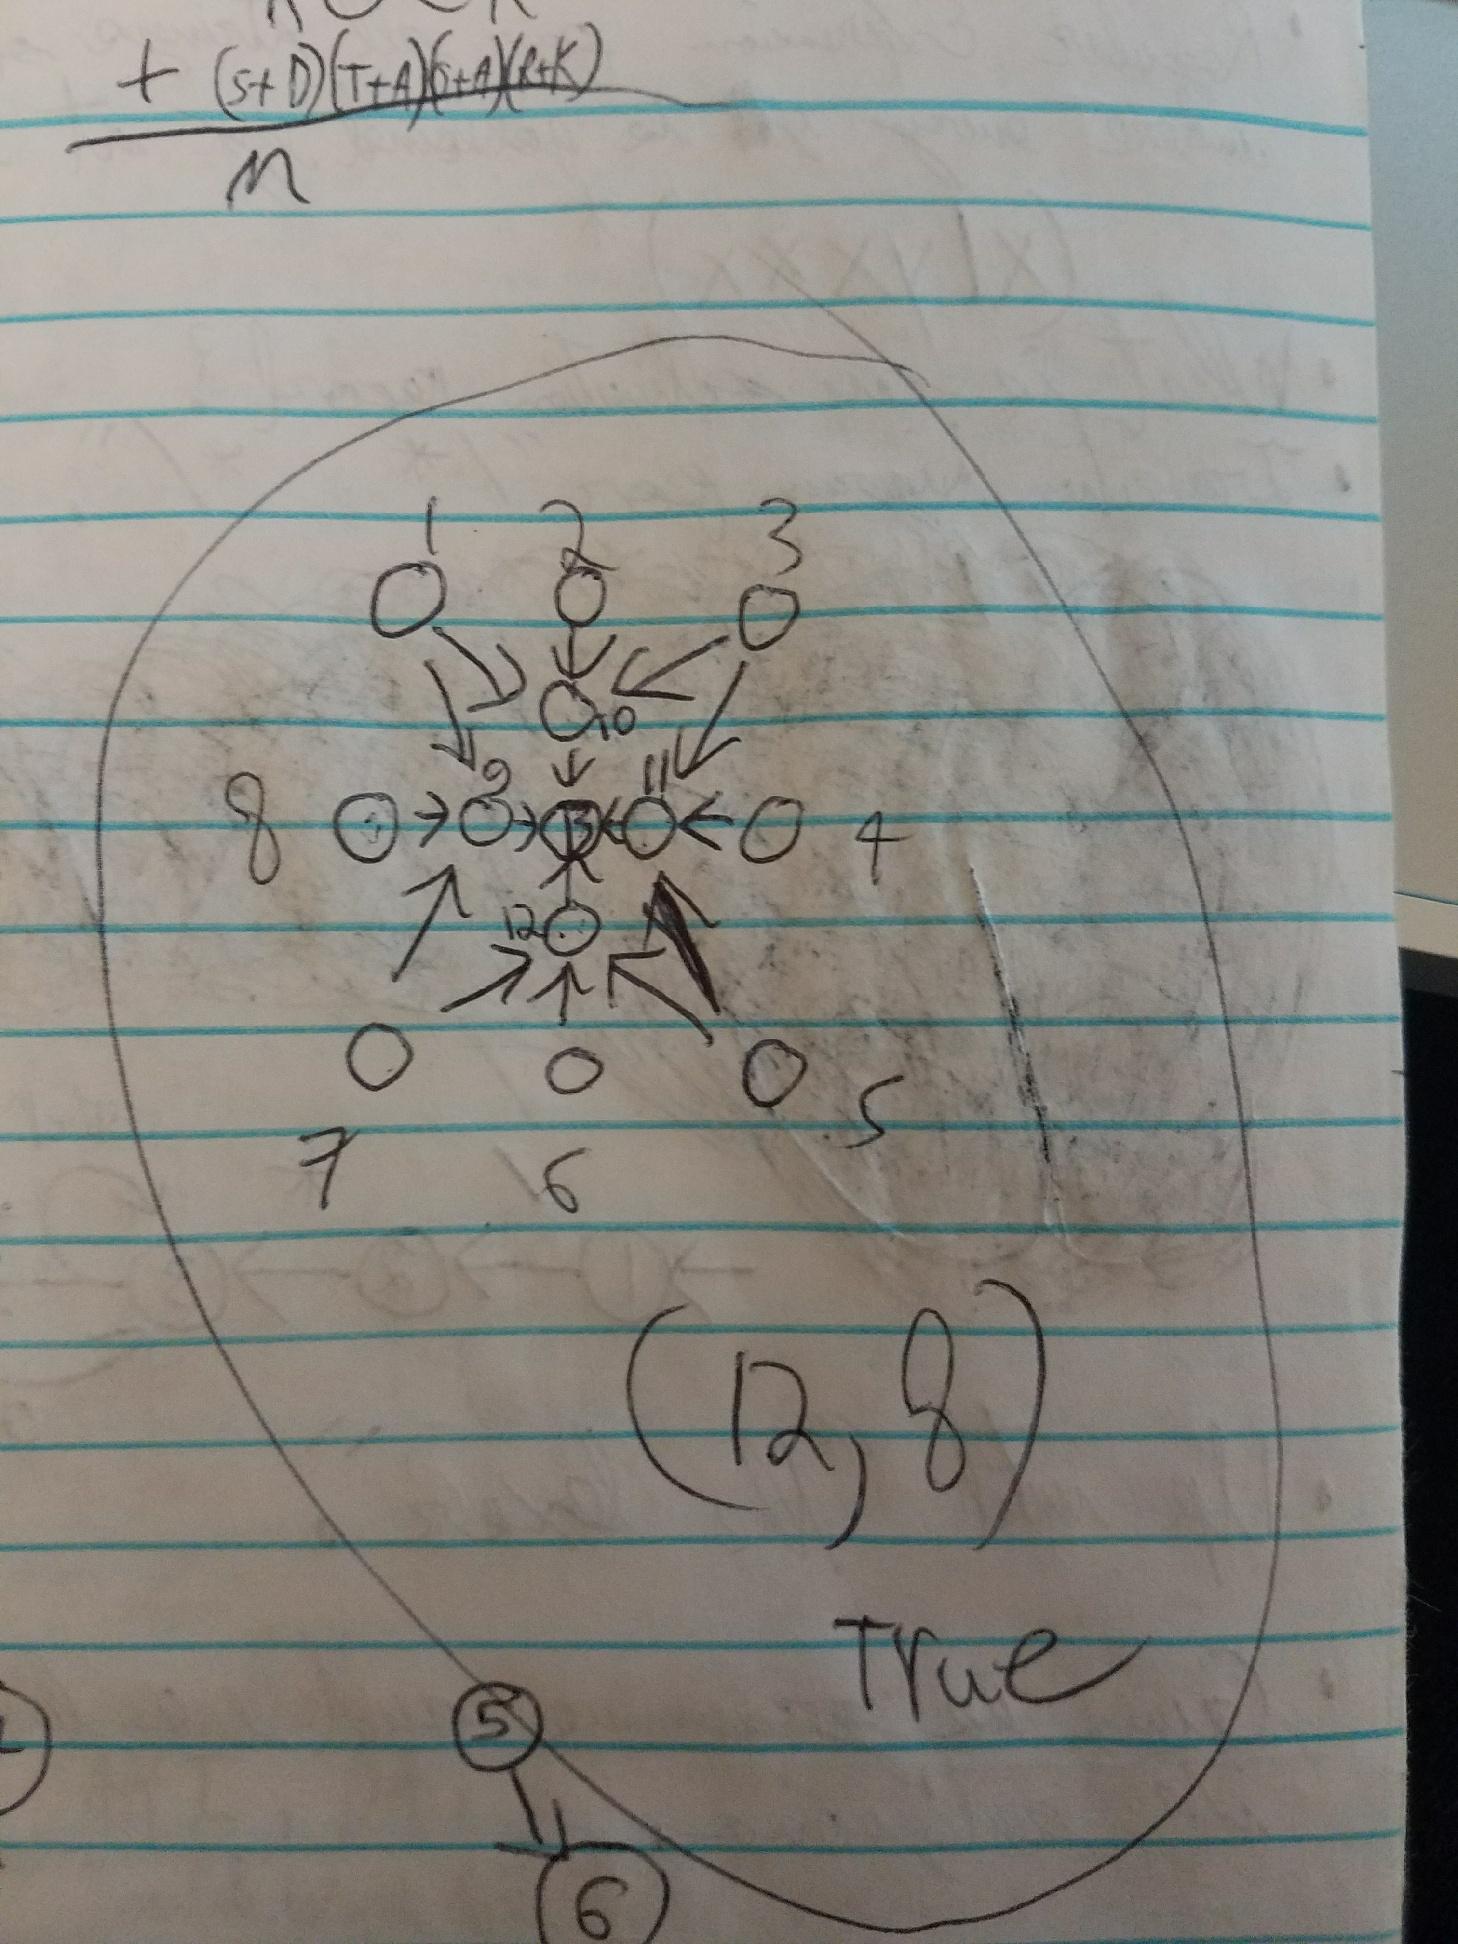 + (S+D)(T+A)(S+A)(R+K)
n
1 2 3
10
8 9 13 11 4
12
5
7 6
(12, 8)
True
5
6